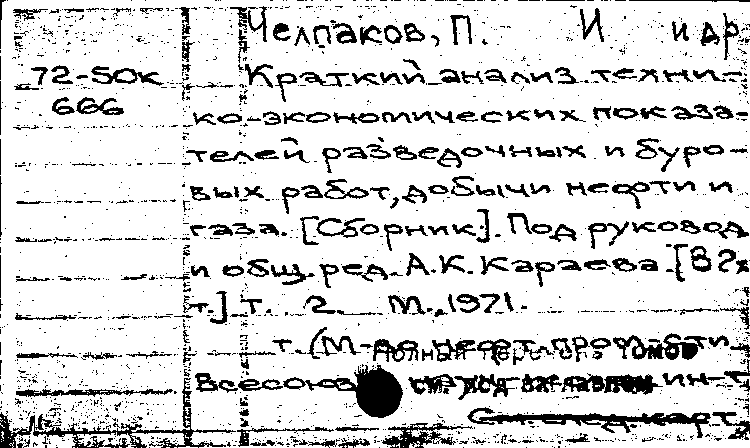 Челпаков, П. И и др.
72-50к Краткий анализ техни-
666 ко-экономических показа-
телей разведочных и буро-
вых работ, добычи нефти и
газа. [Сборник]. Под руковод
и общ. ред. А. К. Караева. [В 2х
т.] т. 2. М., 1971.
т. (М-во нефт. пром-сти
Полный перечень томов
Всесоюз ин-т
см. под заглавием
См. след. карт.